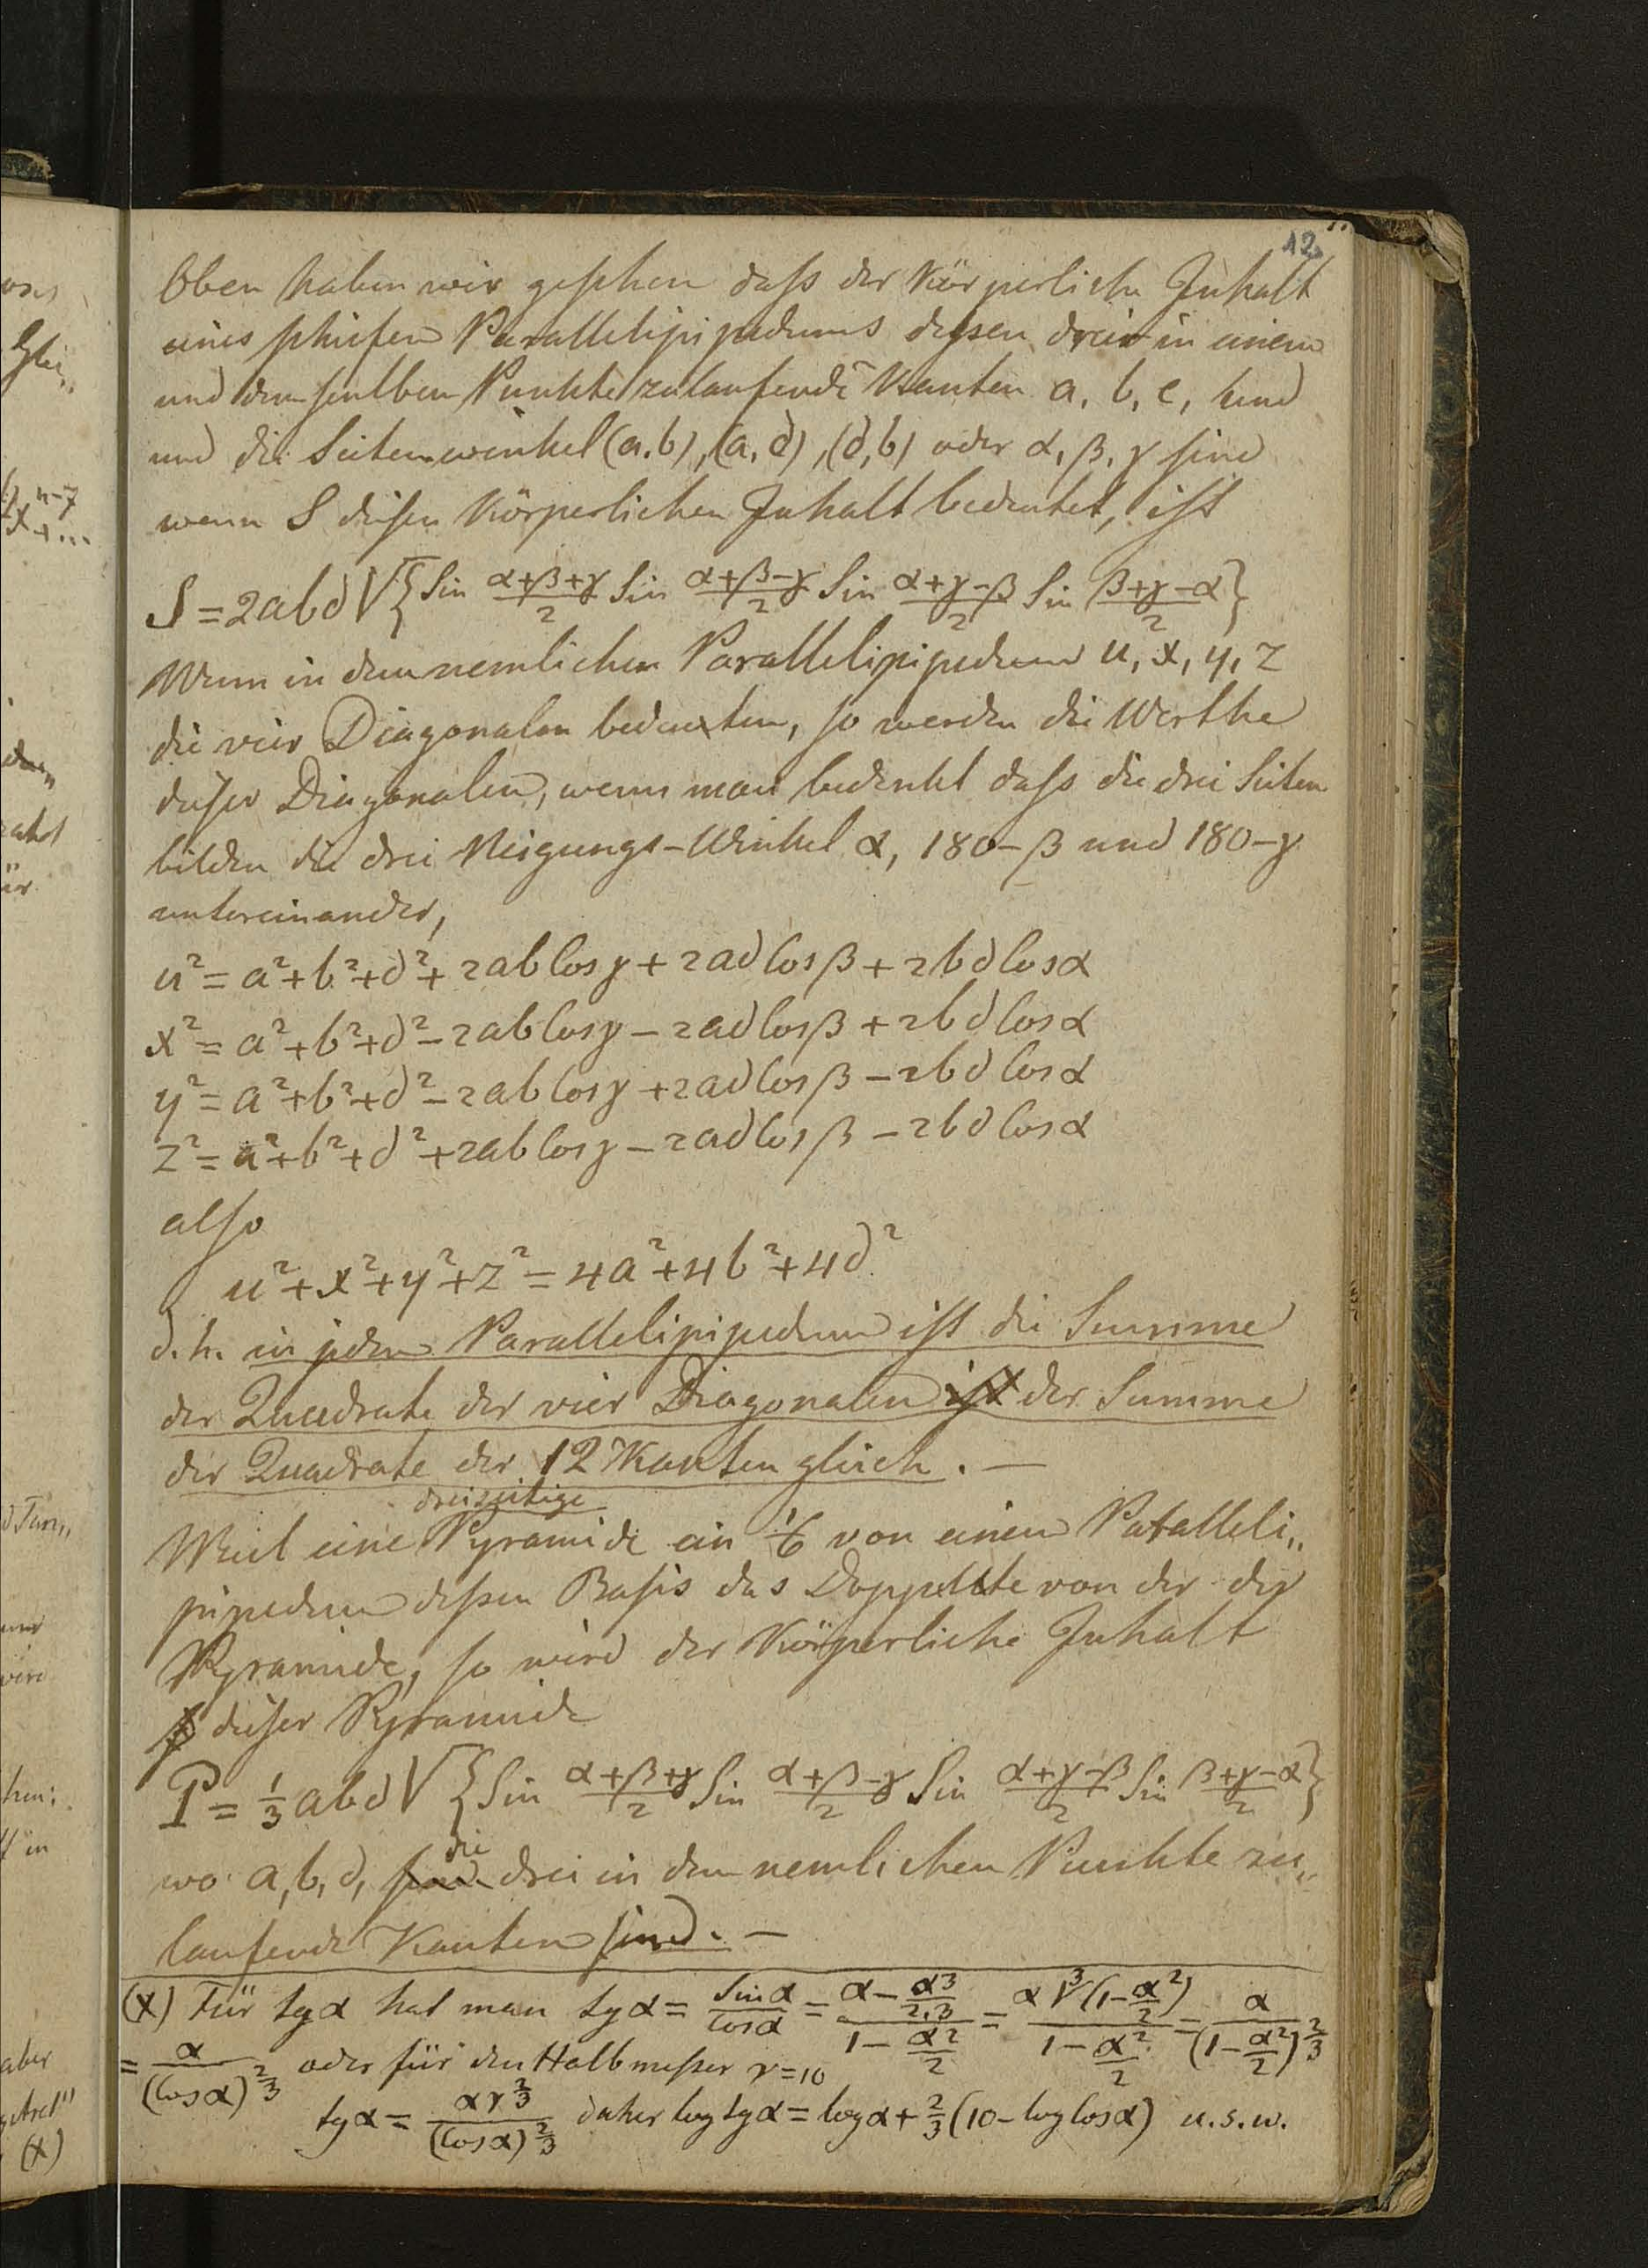 12.
Oben haben wir gesehen daß der Körperliche Inhalt
eines schiefen Parallelipipedums dessen drei in einem
und demselben Punkte zulaufende Kanten a, b, c, sind
und die Seitenwinkel (a.b), (a, d), (d, b) oder α, β, γ sind
wenn S diesen Körperlichen Inhalt bedeutet, ist
S = 2abd √{Sin (α+β+γ)/2 Sin (α+β−γ)/2 Sin (α+γ−β)/2 Sin (β+γ−α)/2}
Wenn in dem nemlichen Parallelipipedum u, x, y, z
die vier Diagonalen bedeuten, so werden die Werthe
dieser Diagonalen, wenn man bedenkt daß die drei Seiten
bilden die drei Neigungs-Winkel α, 180−β und 180−γ
untereinander,
u² = a²+b²+d²+2ab Cosγ+2ad Cosβ+2bd Cosα
x² = a²+b²+d²−2ab Cosγ−2ad Cosβ+2bd Cosα
y² = a²+b²+d²−2ab Cosγ+2ad Cosβ−2bd Cosα
z² = a²+b²+d²+2ab Cosγ−2ad Cosβ−2bd Cosα
also
u²+x²+y²+z² = 4a²+4b²+4d²
d.h. in jedem Parallelipipedum ist die Summe
der Quadrate der vier Diagonalen ist der Summe
der Quadrate der 12 Kanten gleich. —
dreiseitige
Weil eine Pyramide ein 1/6 von einem Paralleli„
pipedum dessen Basis das Doppelte von der der
Pyramide, so wird der Körperliche Inhalt
dieser Pyramide
P = 1/3 abd √{Sin (α+β+γ)/2 Sin (α+β−γ)/2 Sin (α+γ−β)/2 Sin (β+γ−α)/2}
die
wo a, b, d, sind drei in dem nemlichen Punkte zu„
laufende Kanten sind. —
(x) Für tgα hat man tgα = Sinα/Cosα = (α − α³/2.3)/(1 − α²/2) = α ∛(1−α²/2)/(1 − α²/2) = α/(1−α²/2)^2/3
= α/(Cosα)^2/3 oder für den Halbmesser r=10
tgα = αr^2/3/(Cosα)^2/3 daher log tgα = logα + 2/3(10−log Cosα) u.s.w.